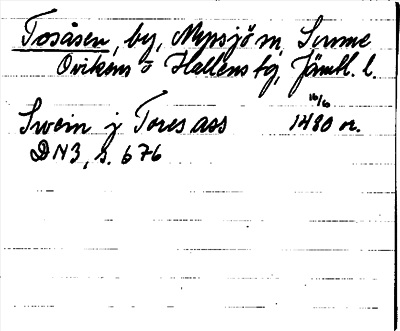 Tosåsen, by, Myssjö sn, Sunne
Ovikens o Hallens tg, Jämtl. l.
Swein j Toresass 16/6 1480 or.
DN3, s. 676